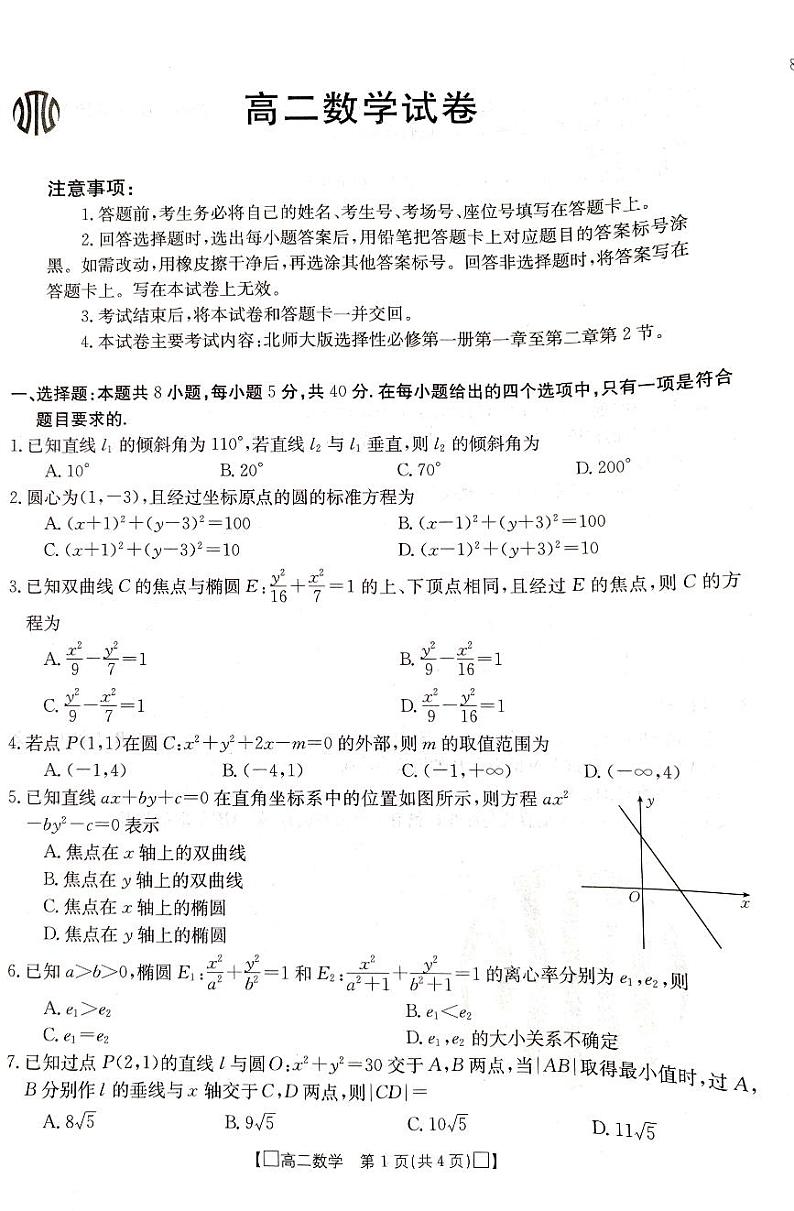 8
高二数学试卷
注意事项:
1.答题前,考生务必将自己的姓名、考生号、考场号、座位号填写在答题卡上。
2.回答选择题时,选出每小题答案后,用铅笔把答题卡上对应题目的答案标号涂
黑。如需改动,用橡皮擦干净后,再选涂其他答案标号。回答非选择题时,将答案写在
答题卡上。写在本试卷上无效。
3.考试结束后,将本试卷和答题卡一并交回。
4.本试卷主要考试内容:北师大版选择性必修第一册第一章至第二章第2节。
一、选择题:本题共8小题,每小题5分,共40分.在每小题给出的四个选项中,只有一项是符合
题目要求的.
1.已知直线 l₁ 的倾斜角为110°,若直线 l₂ 与 l₁ 垂直,则 l₂ 的倾斜角为
A.10° B.20° C.70° D.200°
2.圆心为(1,-3),且经过坐标原点的圆的标准方程为
A.(x+1)²+(y-3)²=100 B.(x-1)²+(y+3)²=100
C.(x+1)²+(y-3)²=10 D.(x-1)²+(y+3)²=10
3.已知双曲线 C 的焦点与椭圆 E:y²/16+x²/7=1 的上、下顶点相同,且经过 E 的焦点,则 C 的方
程为
A.x²/9-y²/7=1 B.y²/9-x²/16=1
C.y²/9-x²/7=1 D.x²/9-y²/16=1
4.若点 P(1,1)在圆 C:x²+y²+2x-m=0 的外部,则 m 的取值范围为
A.(-1,4) B.(-4,1) C.(-1,+∞) D.(-∞,4)
5.已知直线 ax+by+c=0 在直角坐标系中的位置如图所示,则方程 ax²
-by²-c=0 表示
A.焦点在 x 轴上的双曲线
B.焦点在 y 轴上的双曲线
C.焦点在 x 轴上的椭圆
D.焦点在 y 轴上的椭圆
y
O
x
6.已知 a>b>0,椭圆 E₁:x²/a²+y²/b²=1 和 E₂:x²/(a²+1)+y²/(b²+1)=1 的离心率分别为 e₁,e₂,则
A.e₁>e₂ B.e₁<e₂
C.e₁=e₂ D.e₁,e₂ 的大小关系不确定
7.已知过点 P(2,1)的直线 l 与圆 O:x²+y²=30 交于 A,B 两点,当|AB|取得最小值时,过 A,
B 分别作 l 的垂线与 x 轴交于 C,D 两点,则|CD|=
A.8√5 B.9√5 C.10√5 D.11√5
【□高二数学 第1页(共4页)□】